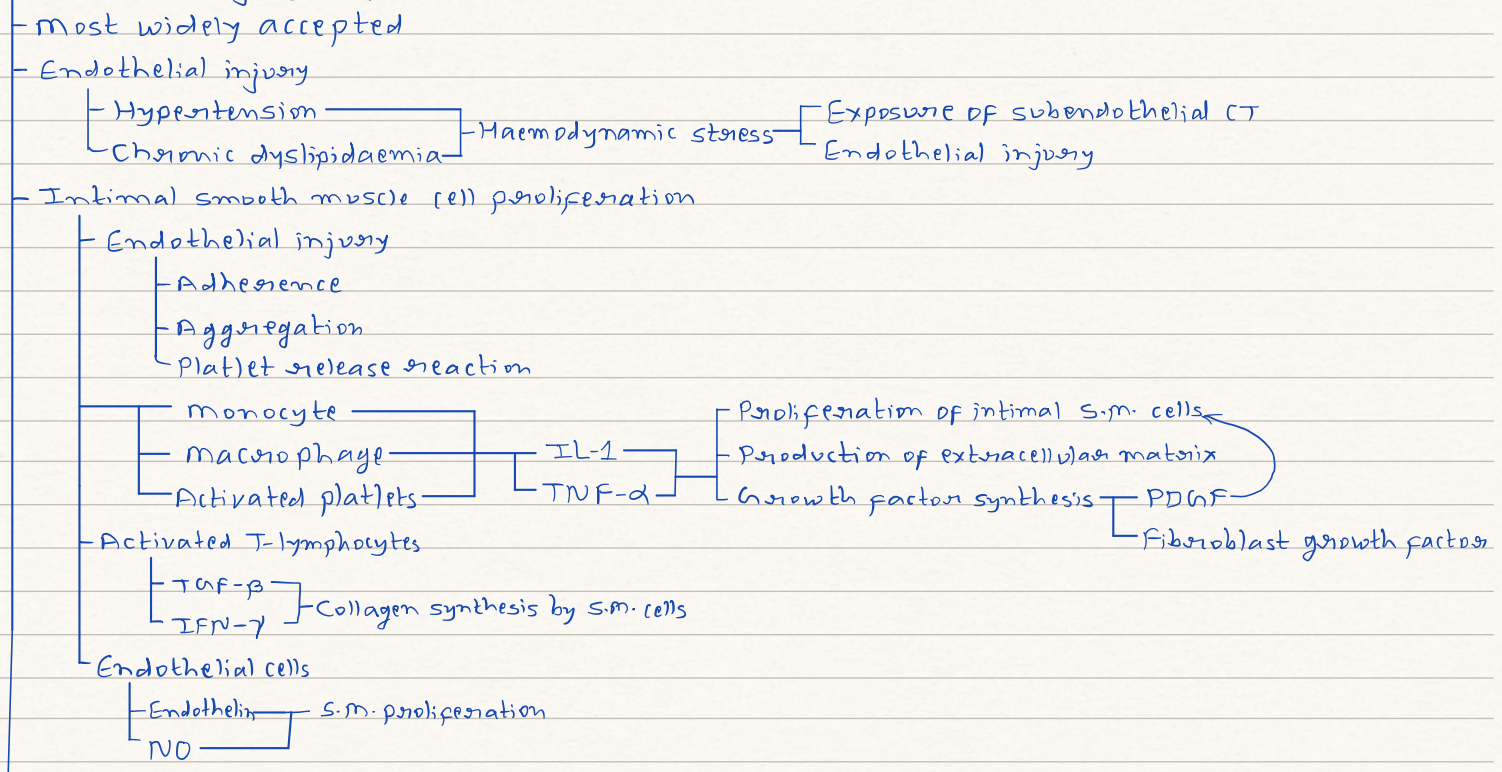 - Most widely accepted
- Endothelial injury
Hypertension
Haemodynamic stress
Exposure of subendothelial CT
Chronic dyslipidaemia
Endothelial injury
- Intimal smooth muscle cell proliferation
Endothelial injury
Adherence
Aggregation
Platlet release reaction
Monocyte
Macrophage
Activated platlets
IL-1
TNF-α
Proliferation of intimal s.m. cells
Production of extracellular matrix
Growth factor synthesis
PDGF
Fibroblast growth factor
Activated T-lymphocytes
TGF-β
IFN-γ
Collagen synthesis by s.m. cells
Endothelial cells
Endothelin
NO
s.m. proliferation